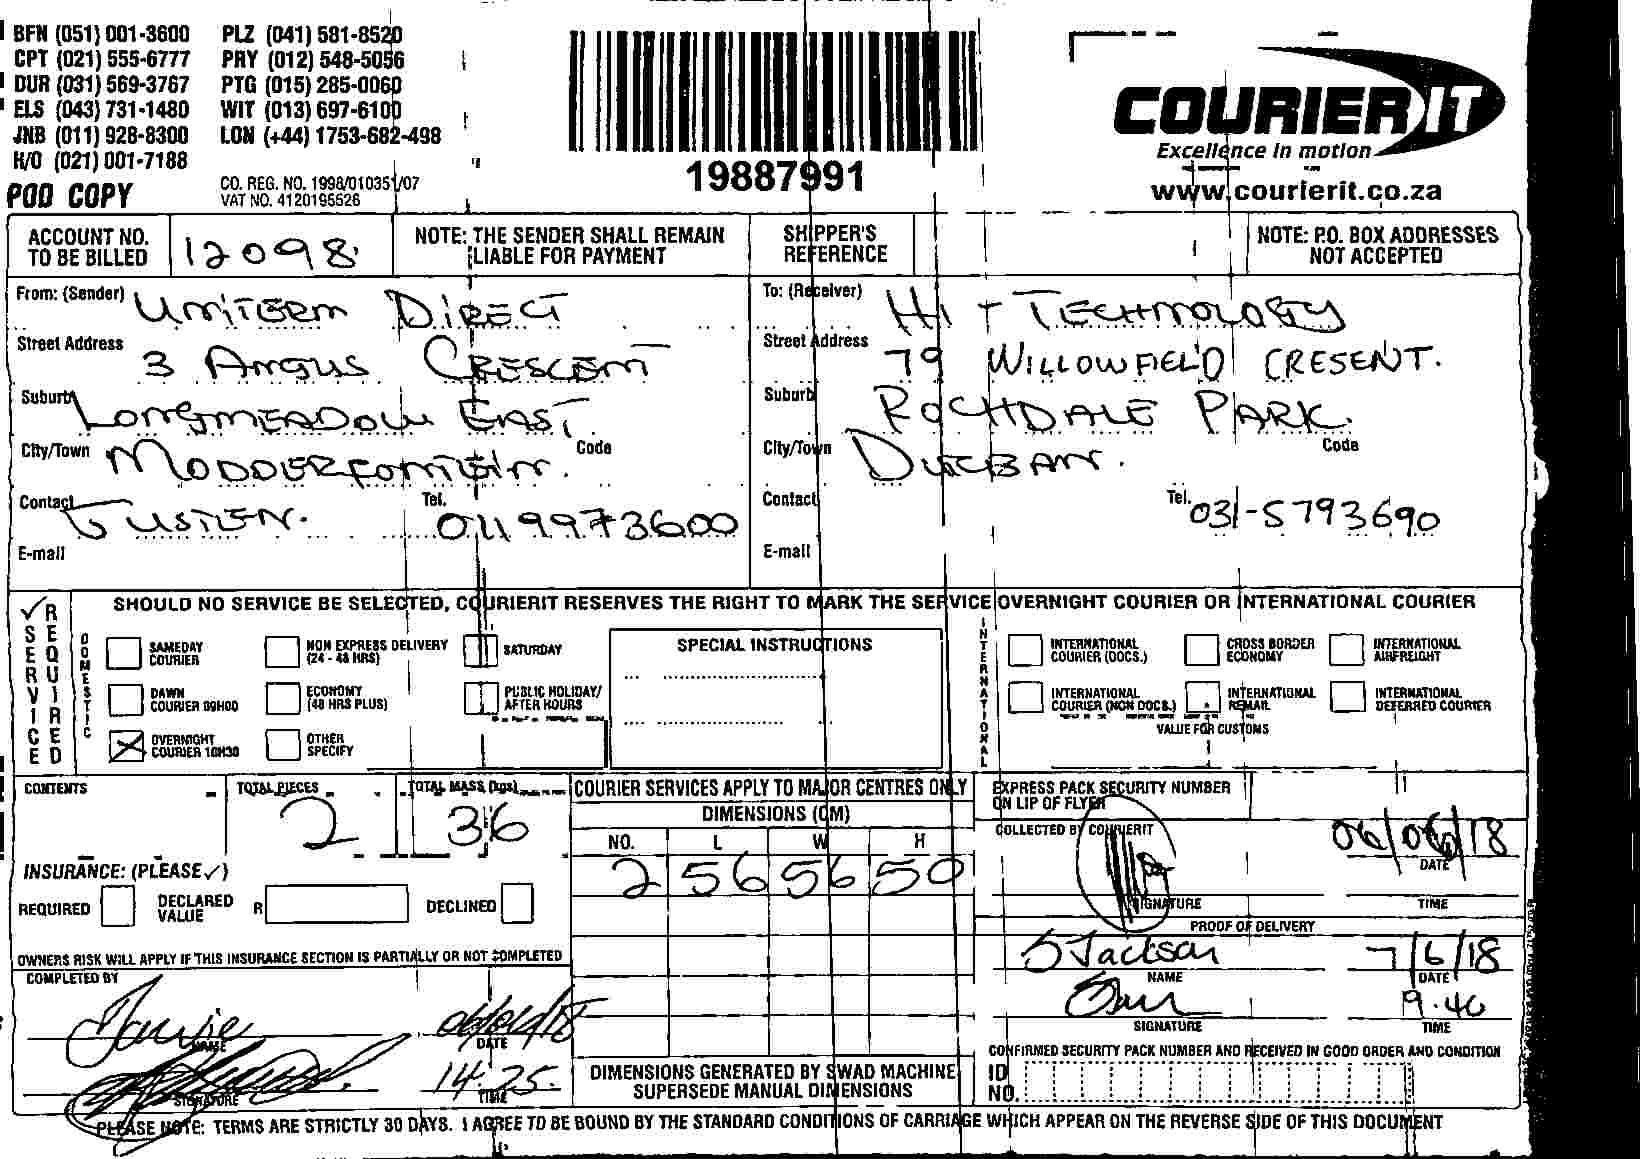 BFN (051) 001-3600 PLZ (041) 581-8520
CPT (021) 555-6777 PRY (012) 548-5056
DUR (031) 569-3767 PTG (015) 285-0060
ELS (043) 731-1480 WIT (013) 697-6100
JNB (011) 928-8300 LON (+44) 1753-682-498
H/O (021) 001-7188
POD COPY
CO. REG. NO. 1998/010351/07
VAT NO. 4120195526
19887991
COURIER IT
Excellence in motion
www.courierit.co.za
ACCOUNT NO. TO BE BILLED 12098
NOTE: THE SENDER SHALL REMAIN LIABLE FOR PAYMENT
SHIPPER'S REFERENCE
NOTE: P.O. BOX ADDRESSES NOT ACCEPTED
From: (Sender) UNITERM DIRECT
Street Address 3 ANGUS CRESCENT
Suburb LONGMEADOW EAST
City/Town MODDERFONTEIN. Code
Contact JUSTEN. Tel. 0119973600
E-mail
To: (Receiver) HI-TECHNOLOGY
Street Address 79 WILLOWFIELD CRESENT.
Suburb ROCHDALE PARK.
City/Town DURBAN. Code
Contact Tel. 031-5793690
E-mail
✓ SERVICE REQUIRED
SHOULD NO SERVICE BE SELECTED, COURIERIT RESERVES THE RIGHT TO MARK THE SERVICE OVERNIGHT COURIER OR INTERNATIONAL COURIER
DOMESTIC
SAMEDAY COURIER
NON EXPRESS DELIVERY (24 - 48 HRS)
SATURDAY
DAWN COURIER 09H00
ECONOMY (48 HRS PLUS)
PUBLIC HOLIDAY/ AFTER HOURS
X OVERNIGHT COURIER 10H30
OTHER SPECIFY
SPECIAL INSTRUCTIONS
INTERNATIONAL
INTERNATIONAL COURIER (DOCS.)
CROSS BORDER ECONOMY
INTERNATIONAL AIRFREIGHT
INTERNATIONAL COURIER (NON DOCS.)
INTERNATIONAL REMAIL
INTERNATIONAL DEFERRED COURIER
VALUE FOR CUSTOMS
CONTENTS
TOTAL PIECES 2
TOTAL MASS (kgs) 36
INSURANCE: (PLEASE ✓)
REQUIRED DECLARED VALUE R DECLINED
OWNERS RISK WILL APPLY IF THIS INSURANCE SECTION IS PARTIALLY OR NOT COMPLETED
COMPLETED BY
NAME DATE
14:25.
SIGNATURE TIME
COURIER SERVICES APPLY TO MAJOR CENTRES ONLY
DIMENSIONS (CM)
NO. L W H
2 56 56 50
DIMENSIONS GENERATED BY SWAD MACHINE SUPERSEDE MANUAL DIMENSIONS
EXPRESS PACK SECURITY NUMBER ON LIP OF FLYER
COLLECTED BY COURIERIT
06/06/18
DATE
SIGNATURE TIME
PROOF OF DELIVERY
S Jackson 7/6/18
NAME DATE
9.40
SIGNATURE TIME
CONFIRMED SECURITY PACK NUMBER AND RECEIVED IN GOOD ORDER AND CONDITION
ID NO.
PLEASE NOTE: TERMS ARE STRICTLY 30 DAYS. I AGREE TO BE BOUND BY THE STANDARD CONDITIONS OF CARRIAGE WHICH APPEAR ON THE REVERSE SIDE OF THIS DOCUMENT